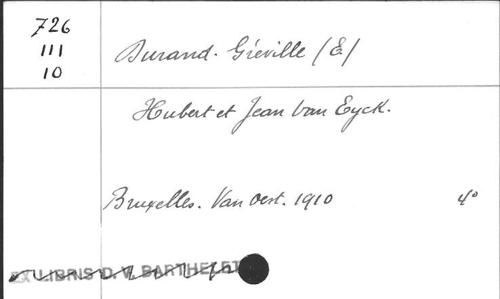 726
III
10
Durand-Gréville (E)
Hubert et Jean Van Eyck.
Bruxelles. Van Oest. 1910 4°
EX LIBRIS D. V. BARTHELET